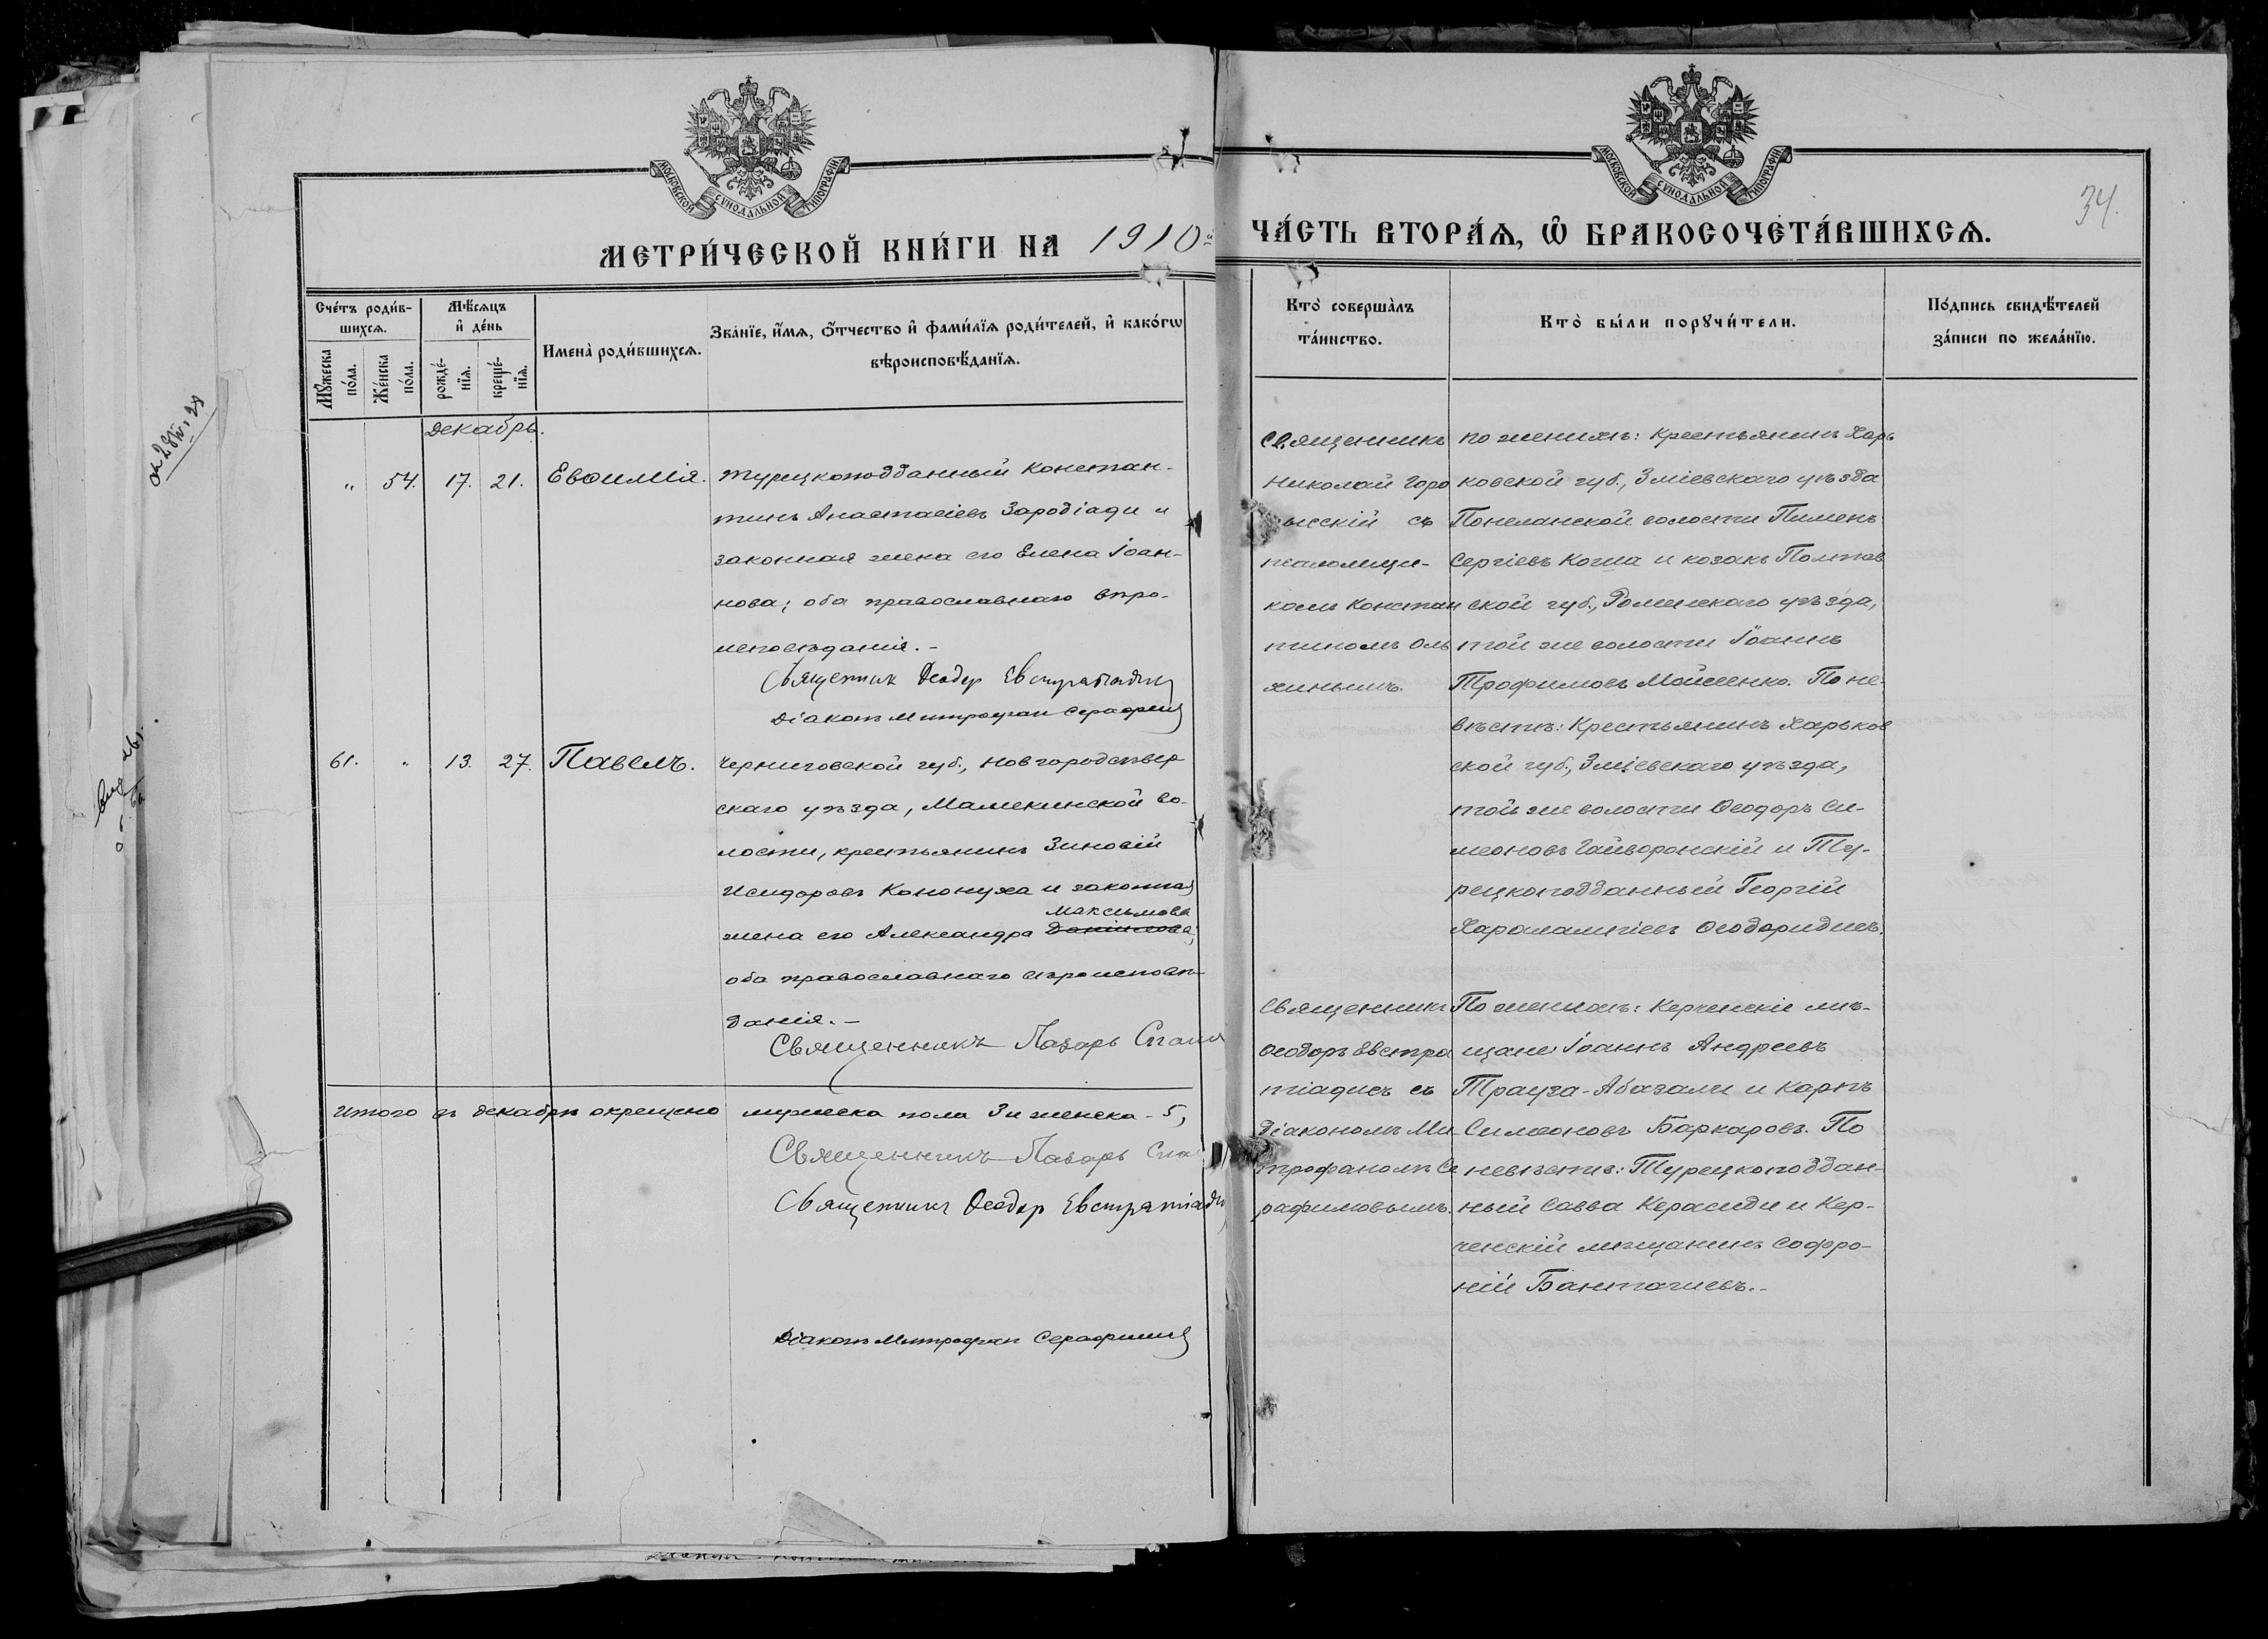 МОСКОВСКОЙ СѴНОДАЛЬНОЙ ТИПОГРАФІИ
МЕТРИ́ЧЕСКОЙ КНИ́ГИ НА 1910
Сче́тъ роди́вшихся.
Мꙋ́жеска по́ла.
Же́нска по́ла.
Мѣ́сяцъ и҆ де́нь
рожде́нїя.
креще́нїя.
Имена̀ роди́вшихся.
Зва́нїе, и҆́мя, ѻ҆́тчество и҆ фами́лїя роди́телей, и҆ како́гѡ
вѣроисповѣ́данїя.
Декабрь.
" 54. 17. 21. Евѳимія.
турецкоподданный Констан-
тинъ Анастасіевъ Зародіади и
законная жена его Елена Іоан-
нова; оба православнаго вѣро-
исповѣданія.-
Священник Ѳеодор Евстратіадис
Діаконъ Митрофан Серафимов
61. " 13. 27. Павелъ.
Черниговской губ., Новгородсѣвер
скаго уѣзда, Мамекинской во-
лости, крестьянинъ Зиновій
Исидоровъ Кононуха и законная
Максимова
жена его Александра Даніилова;
оба православнаго вѣроисповѣ-
данія.-
Священникъ Лазарь
Итого въ декабрѣ окрещено мужеска пола 3 и женска - 5,
Священникъ Лазарь
Священникъ Ѳеодор Евстратіадис
Діаконъ Митрофан Серафимов
МОСКОВСКОЙ СѴНОДАЛЬНОЙ ТИПОГРАФІИ
34.
ЧА́СТЬ ВТОРА́Я, Ѡ҆ БРАКОСОЧЕТА́ВШИХСЯ.
Кто̀ соверша́лъ
та́инство.
Кто̀ бы́ли порꙋчи́тели.
По́дпись свидѣ́телей
за́писи по жела́нїю.
Священникъ
Николай Горо
съ
псаломщи-
комъ Констан
тиномъ Оль
хинымъ.
по женихѣ: крестьянинъ Харь
ковской губ., Зміевскаго уѣзда
волости Пименъ
Сергіевъ Когша и козакъ Полтав
ской губ., Роменскаго уѣзда,
той же волости Іоаннъ
Трофимовъ Мойсеенко. По не-
вѣстѣ: Крестьянинъ Харьков
ской губ., Зміевскаго уѣзда,
той же волости Ѳеодоръ Си-
меоновъ Гайворонскій и Ту-
рецкоподданный Георгій
Харалампіевъ Ѳеодоридисъ.
Священникъ
Ѳеодоръ Евстра
тіадисъ съ
діакономъ Ми-
трофаномъ Се
рафимовымъ.
По женихѣ: Керченскіе мѣ-
щане Іоаннъ Андреевъ
Трауза-Абазали и Карпъ
Симеоновъ Баркаровъ. По
невѣстѣ: Турецкоподдан-
ный Савва Керасиди и Кер-
ченскій мѣщанинъ Софро-
ній Бантачиевъ.-